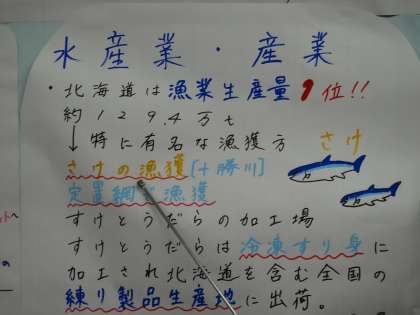 水産業・産業
・北海道は漁業生産量1位!!
約129.4万t
↓特に有名な漁獲方
さけ
さけの漁獲[十勝川]
定置網で漁獲
すけとうだらの加工場
すけとうだらは冷凍すり身に
加工され北海道を含む全国の
練り製品生産地に出荷。